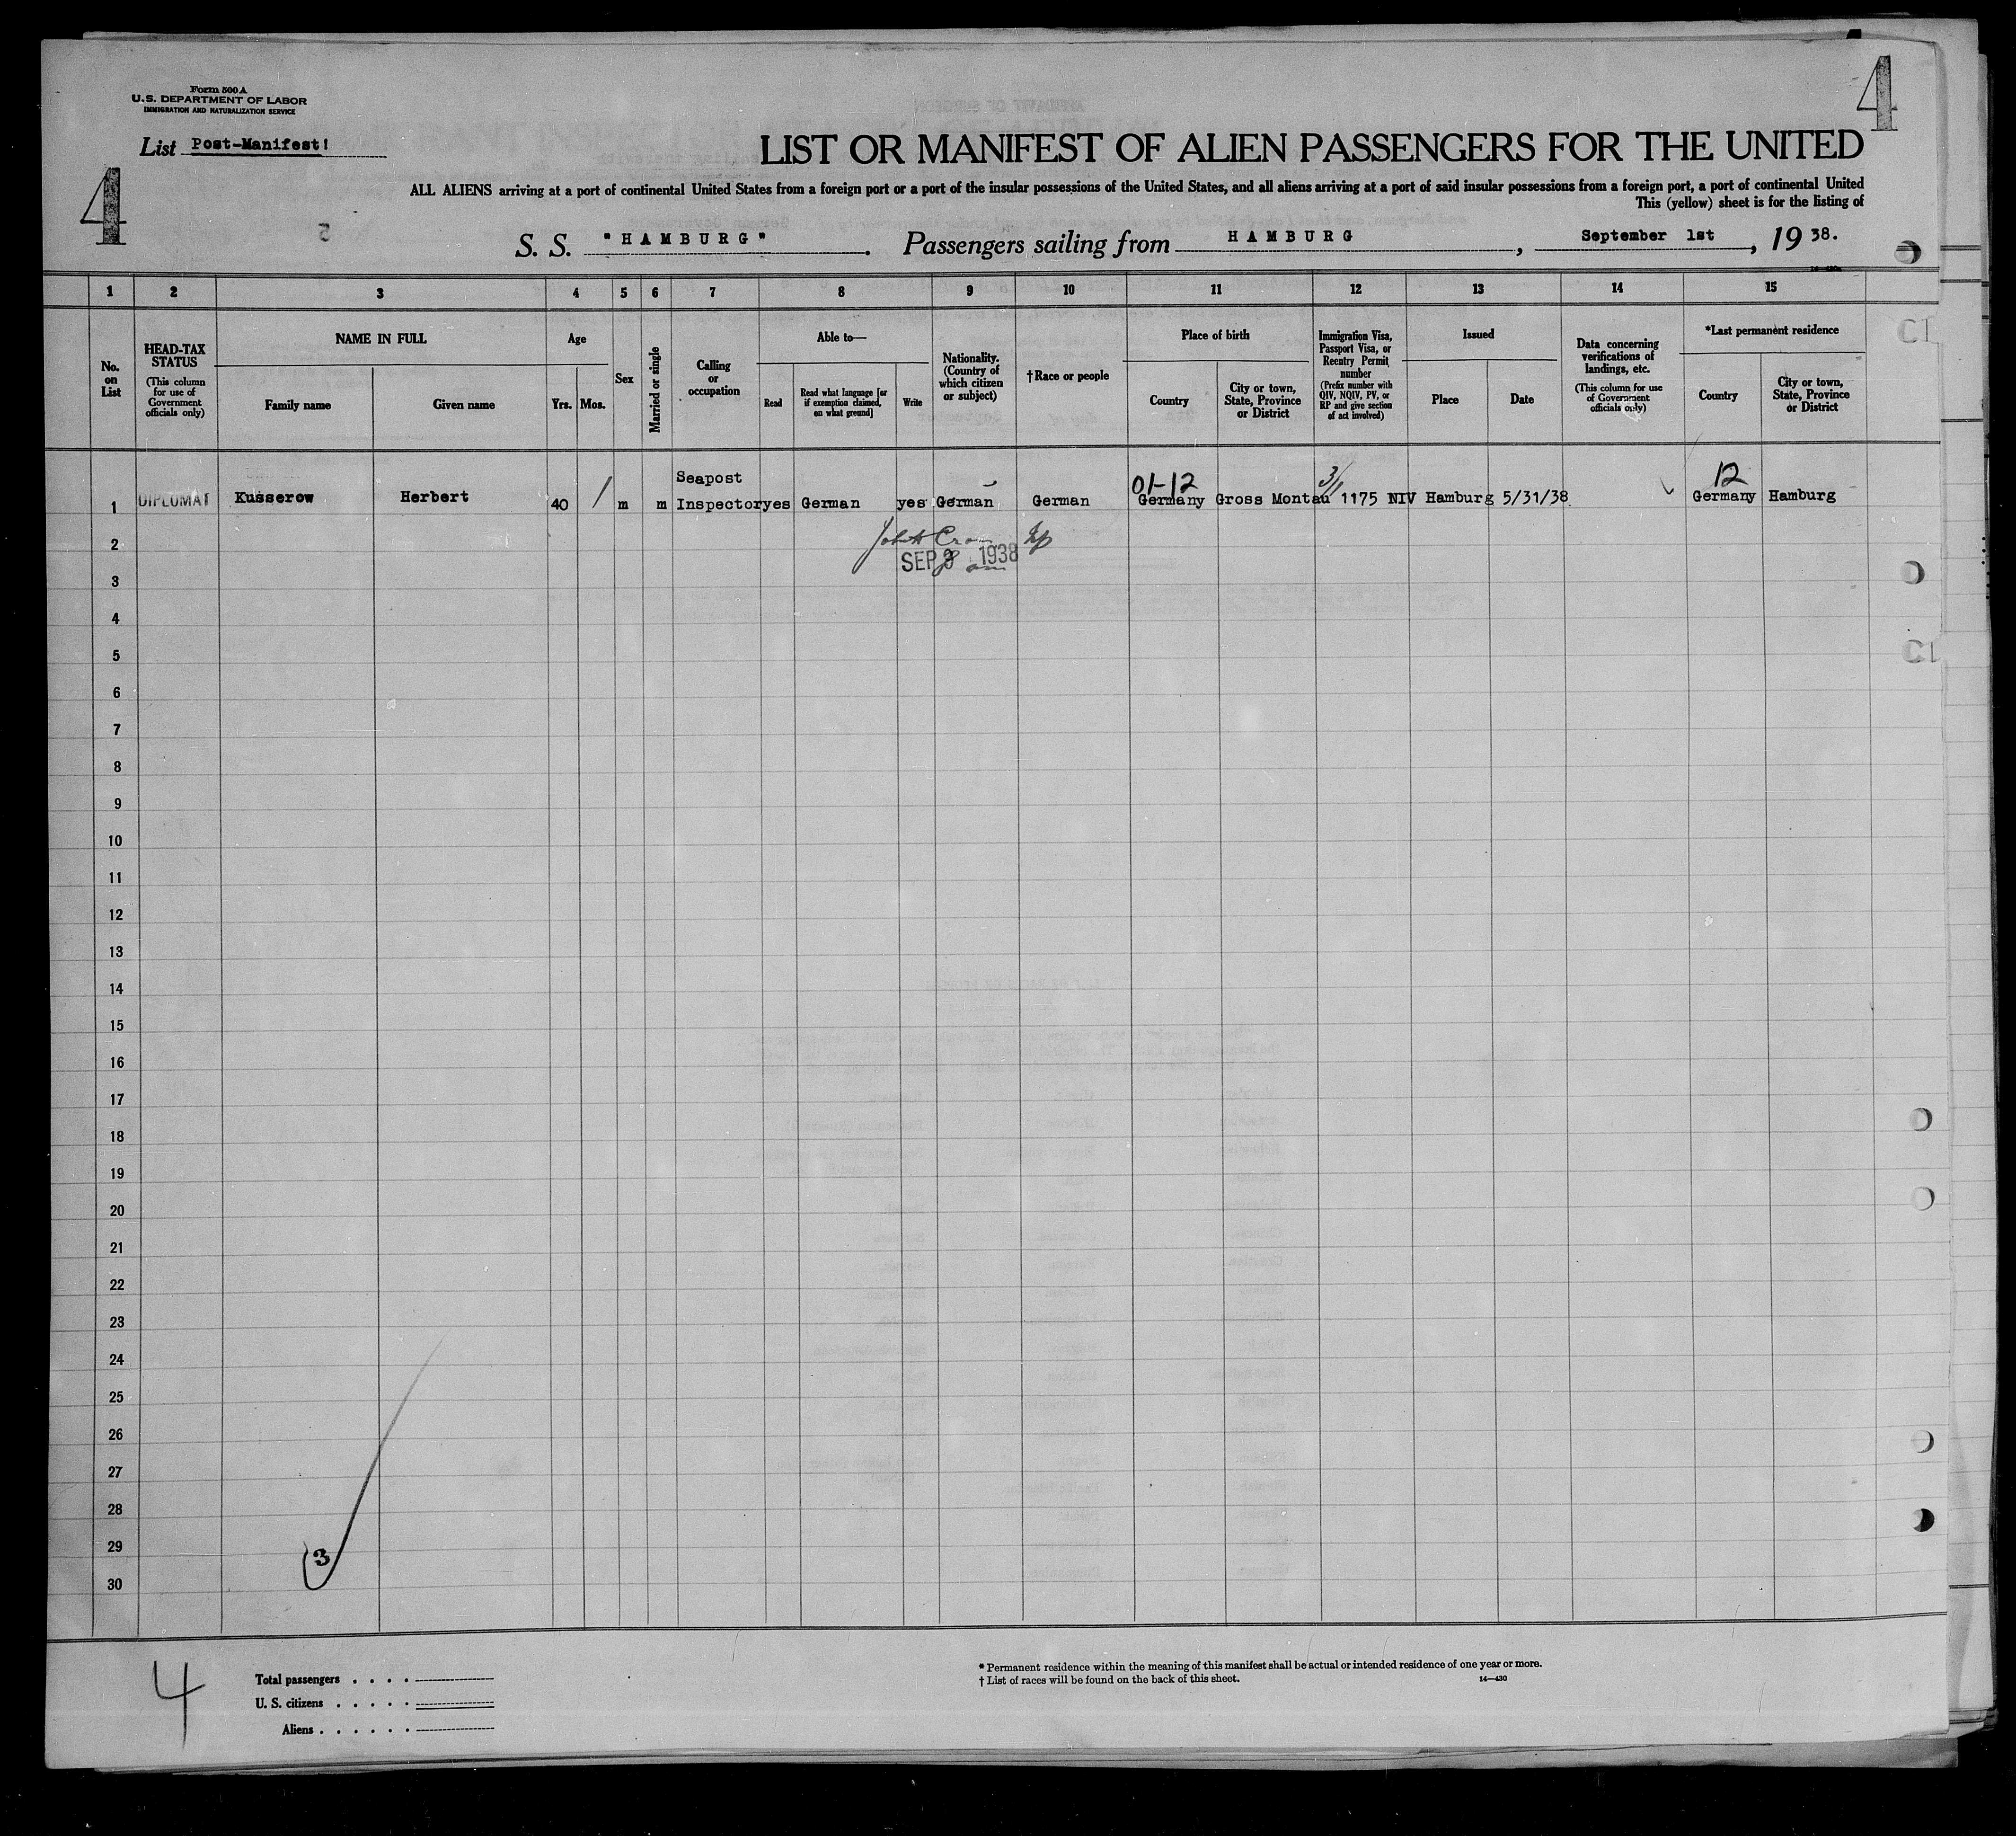 Form 500 A
U.S. DEPARTMENT OF LABOR
IMMIGRATION AND NATURALIZATION SERVICE
List Post-Manifest!
4
4
LIST OR MANIFEST OF ALIEN PASSENGERS FOR THE UNITED
ALL ALIENS arriving at a port of continental United States from a foreign port or a port of the insular possessions of the United States, and all aliens arriving at a port of said insular possessions from a foreign port, a port of continental United
This (yellow) sheet is for the listing of
S. S. "HAMBURG". Passengers sailing from HAMBURG, September 1st, 1938.
1 2 3 4 5 6 7 8 9 10 11 12 13 14 15
No. on List
HEAD-TAX STATUS
(This column for use of Government officials only)
NAME IN FULL
Family name
Given name
Age
Yrs. Mos.
Sex
Married or single
Calling or occupation
Able to—
Read
Read what language [or if exemption claimed, on what ground]
Write
Nationality. (Country of which citizen or subject)
†Race or people
Place of birth
Country
City or town, State, Province or District
Immigration Visa, Passport Visa, or Reentry Permit number
(Prefix number with QIV, NQIV, PV, or RP and give section of act involved)
Issued
Place
Date
Data concerning verifications of landings, etc.
(This column for use of Government officials only)
*Last permanent residence
Country
City or town, State, Province or District
01-12 3/1 12
1 DIPLOMAT Kusserow Herbert 40 / m m Seapost Inspector yes German yes German German Germany Gross Montau 1175 NIV Hamburg 5/31/38 Germany Hamburg
2
SEP 9 1938
3
4
5
6
7
8
9
10
11
12
13
14
15
16
17
18
19
20
21
22
23
24
25
26
27
28
29
3
30
4
Total passengers . . . .
U. S. citizens . . . . .
Aliens . . . . . .
* Permanent residence within the meaning of this manifest shall be actual or intended residence of one year or more.
† List of races will be found on the back of this sheet. 14—430